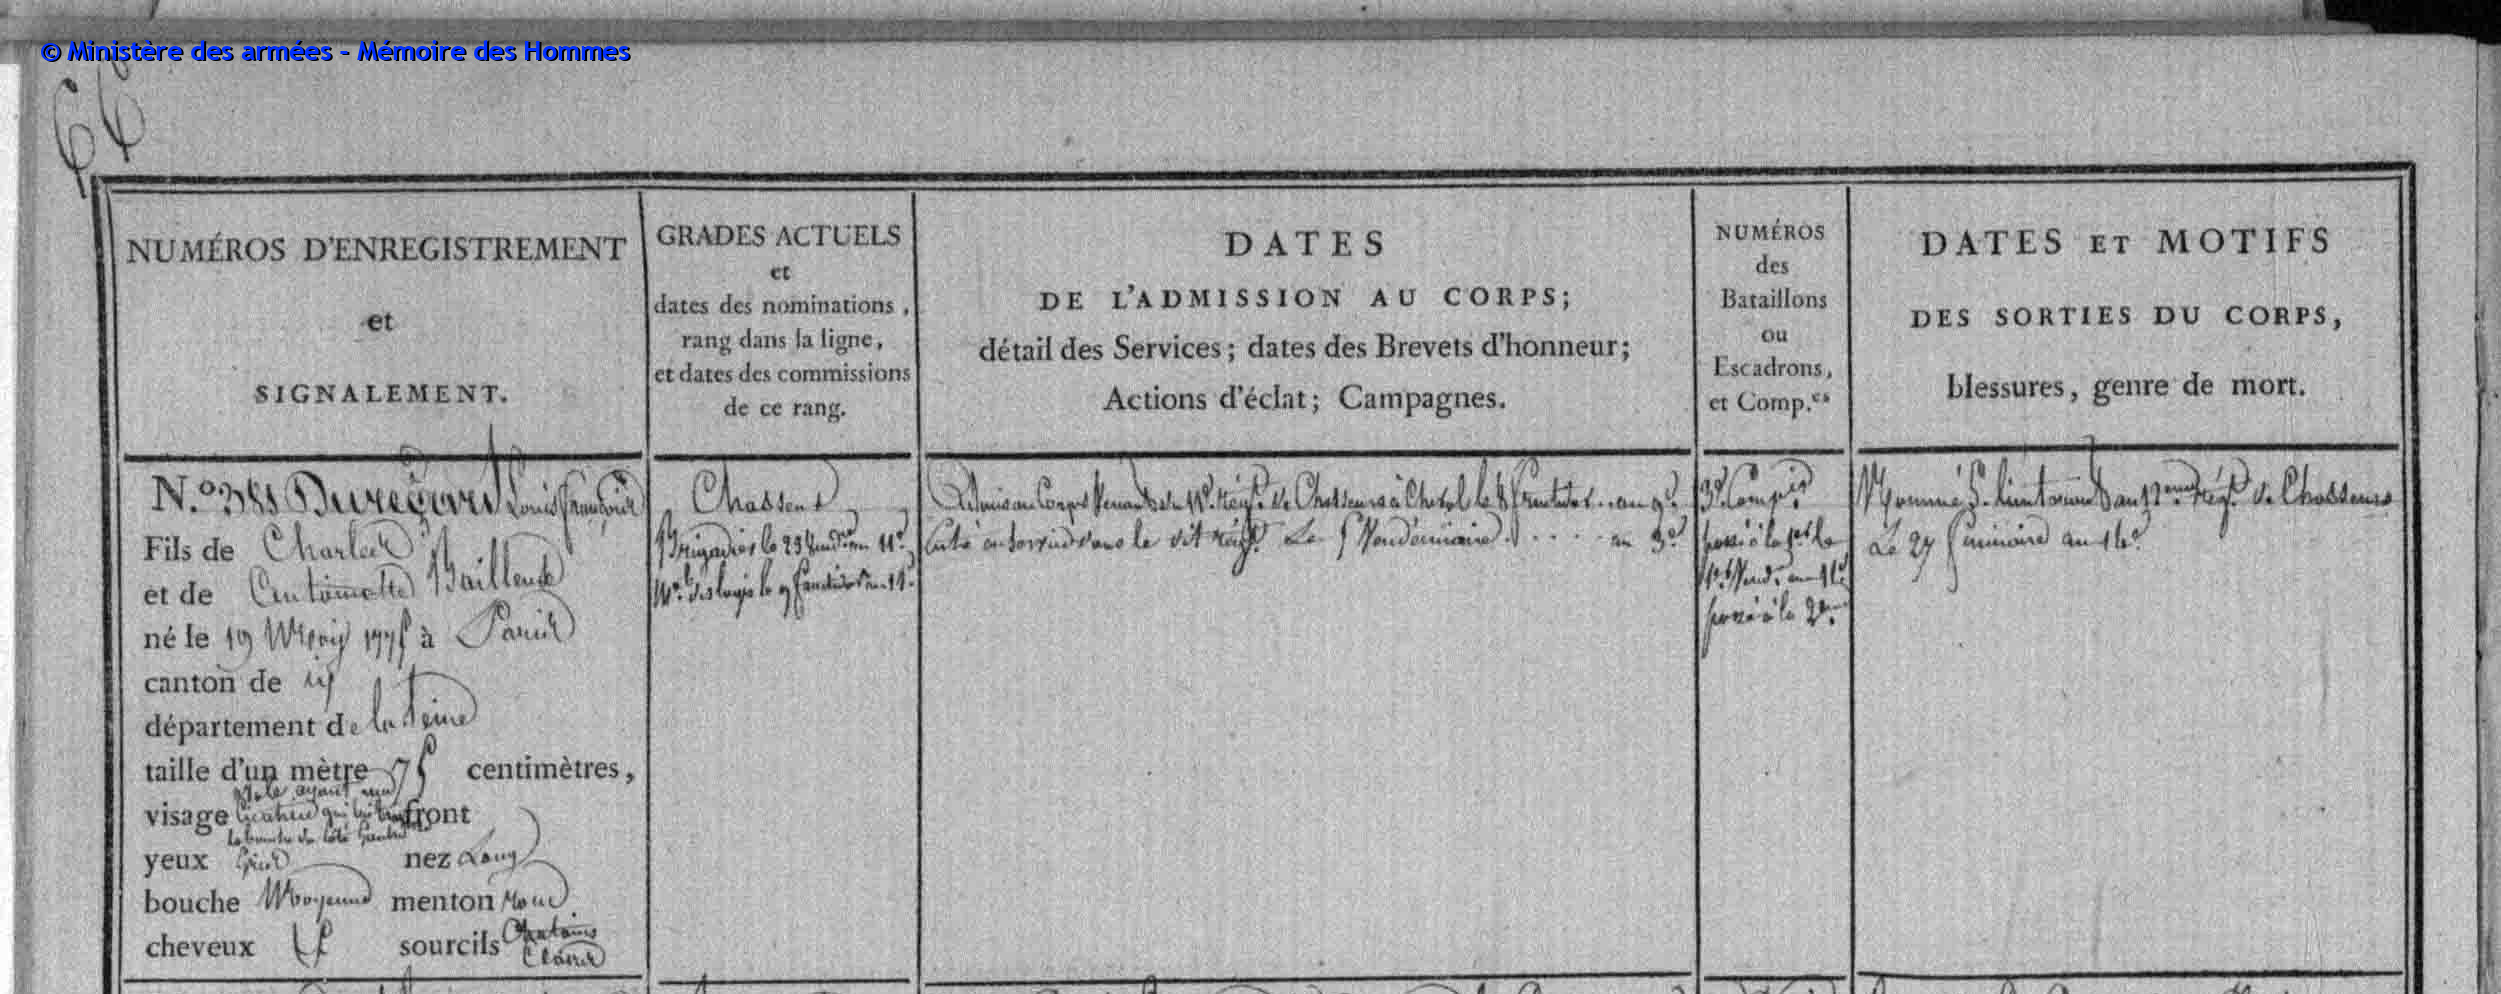 © Ministère des armées - Mémoire des Hommes
NUMÉROS D'ENREGISTREMENT
et
SIGNALEMENT.
GRADES ACTUELS
et
dates des nominations,
rang dans la ligne,
et dates des commissions
de ce rang.
DATES
DE L'ADMISSION AU CORPS;
détail des Services; dates des Brevets d'honneur;
Actions d'éclat; Campagnes.
NUMÉROS
des
Bataillons
ou
Escadrons,
et Comp.es
DATES ET MOTIFS
DES SORTIES DU CORPS,
blessures, genre de mort.
N.o 388 Louis François
Fils de Charles
et de Antoinette
né le 19 à Paris
canton de id
département de la Seine
taille d'un mètre 75 centimètres,
visage ovale ayant une
front
yeux Gris nez Long
bouche Moyenne menton rond
cheveux sourcils Chatains
Clairs
Chasseur
Brigadier le 23 Vend.re an 11.e
M.al des logis le 9 fructidor an 11.e
Admis au Corps Venant du 11.e rég.t de Chasseurs à Cheval le 8 fructidor .. an 9.e
Entré au Service dans le dit rég.t Le Vendémiaire . . . . an 3.e
3.e Comp.ie
passé à la
1.er Vend.re an 11.e
passé à la 2.me
Nommé S. lieutenant au rég.t de Chasseurs
Le 27 frimaire an 14.e